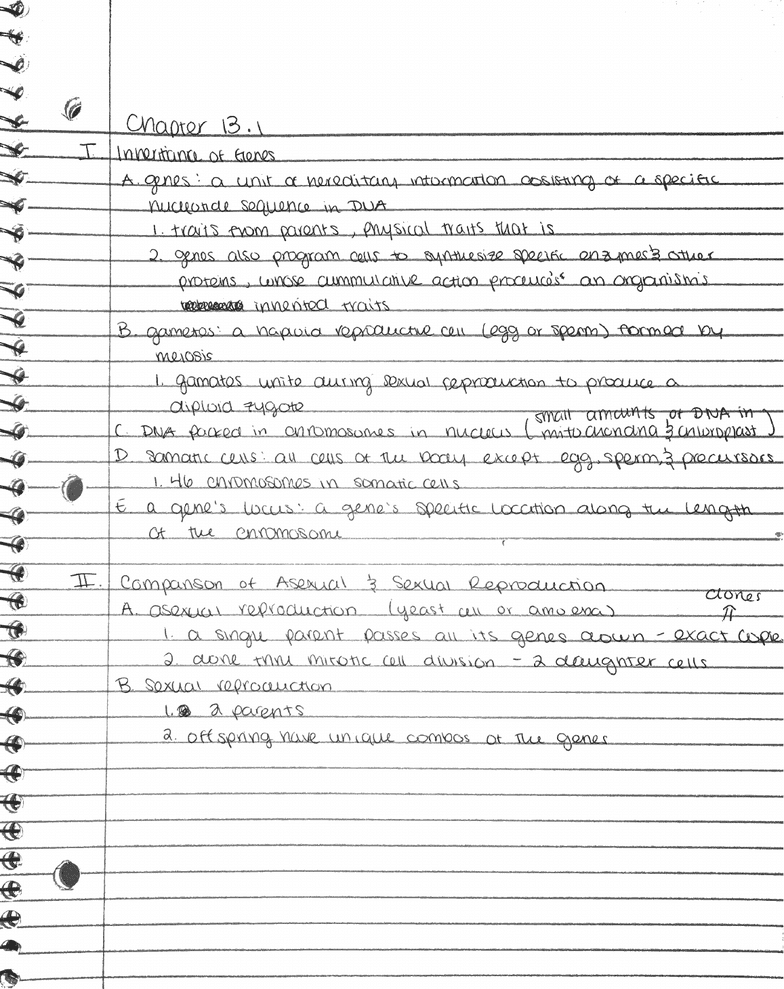 Chapter 13.1
I. Inheritance of Genes
A. genes: a unit of hereditary information cosisting of a specific
nucleotide sequence in DNA
1. traits from parents, physical traits that is
2. genes also program cells to synthesize specific enzymes & other
proteins, whose cummulative action produces an organism's
inherited traits
B. gametes: a haploid reproductive cell (egg or sperm) formed by
meiosis
1. gamates unite during sexual reproduction to produce a
diploid zygote
C. DNA packed in chromosomes in nucleus (small amounts of DNA in
mitochondria & chloroplast)
D. Somatic cells: all cells of the body except egg, sperm, & precursors
1. 46 chromosomes in somatic cells
E. a gene's locus: a gene's specific location along the length
of the chromosome
II. Comparison of Asexual & Sexual Reproduction
clones
A. asexual reproduction (yeast cell or amoeba) ⇑
1. a single parent passes all its genes down - exact copie
2. done thru mitotic cell division - 2 daughter cells
B. Sexual reproduction
1. 2 parents
2. offspring have unique combos of the genes